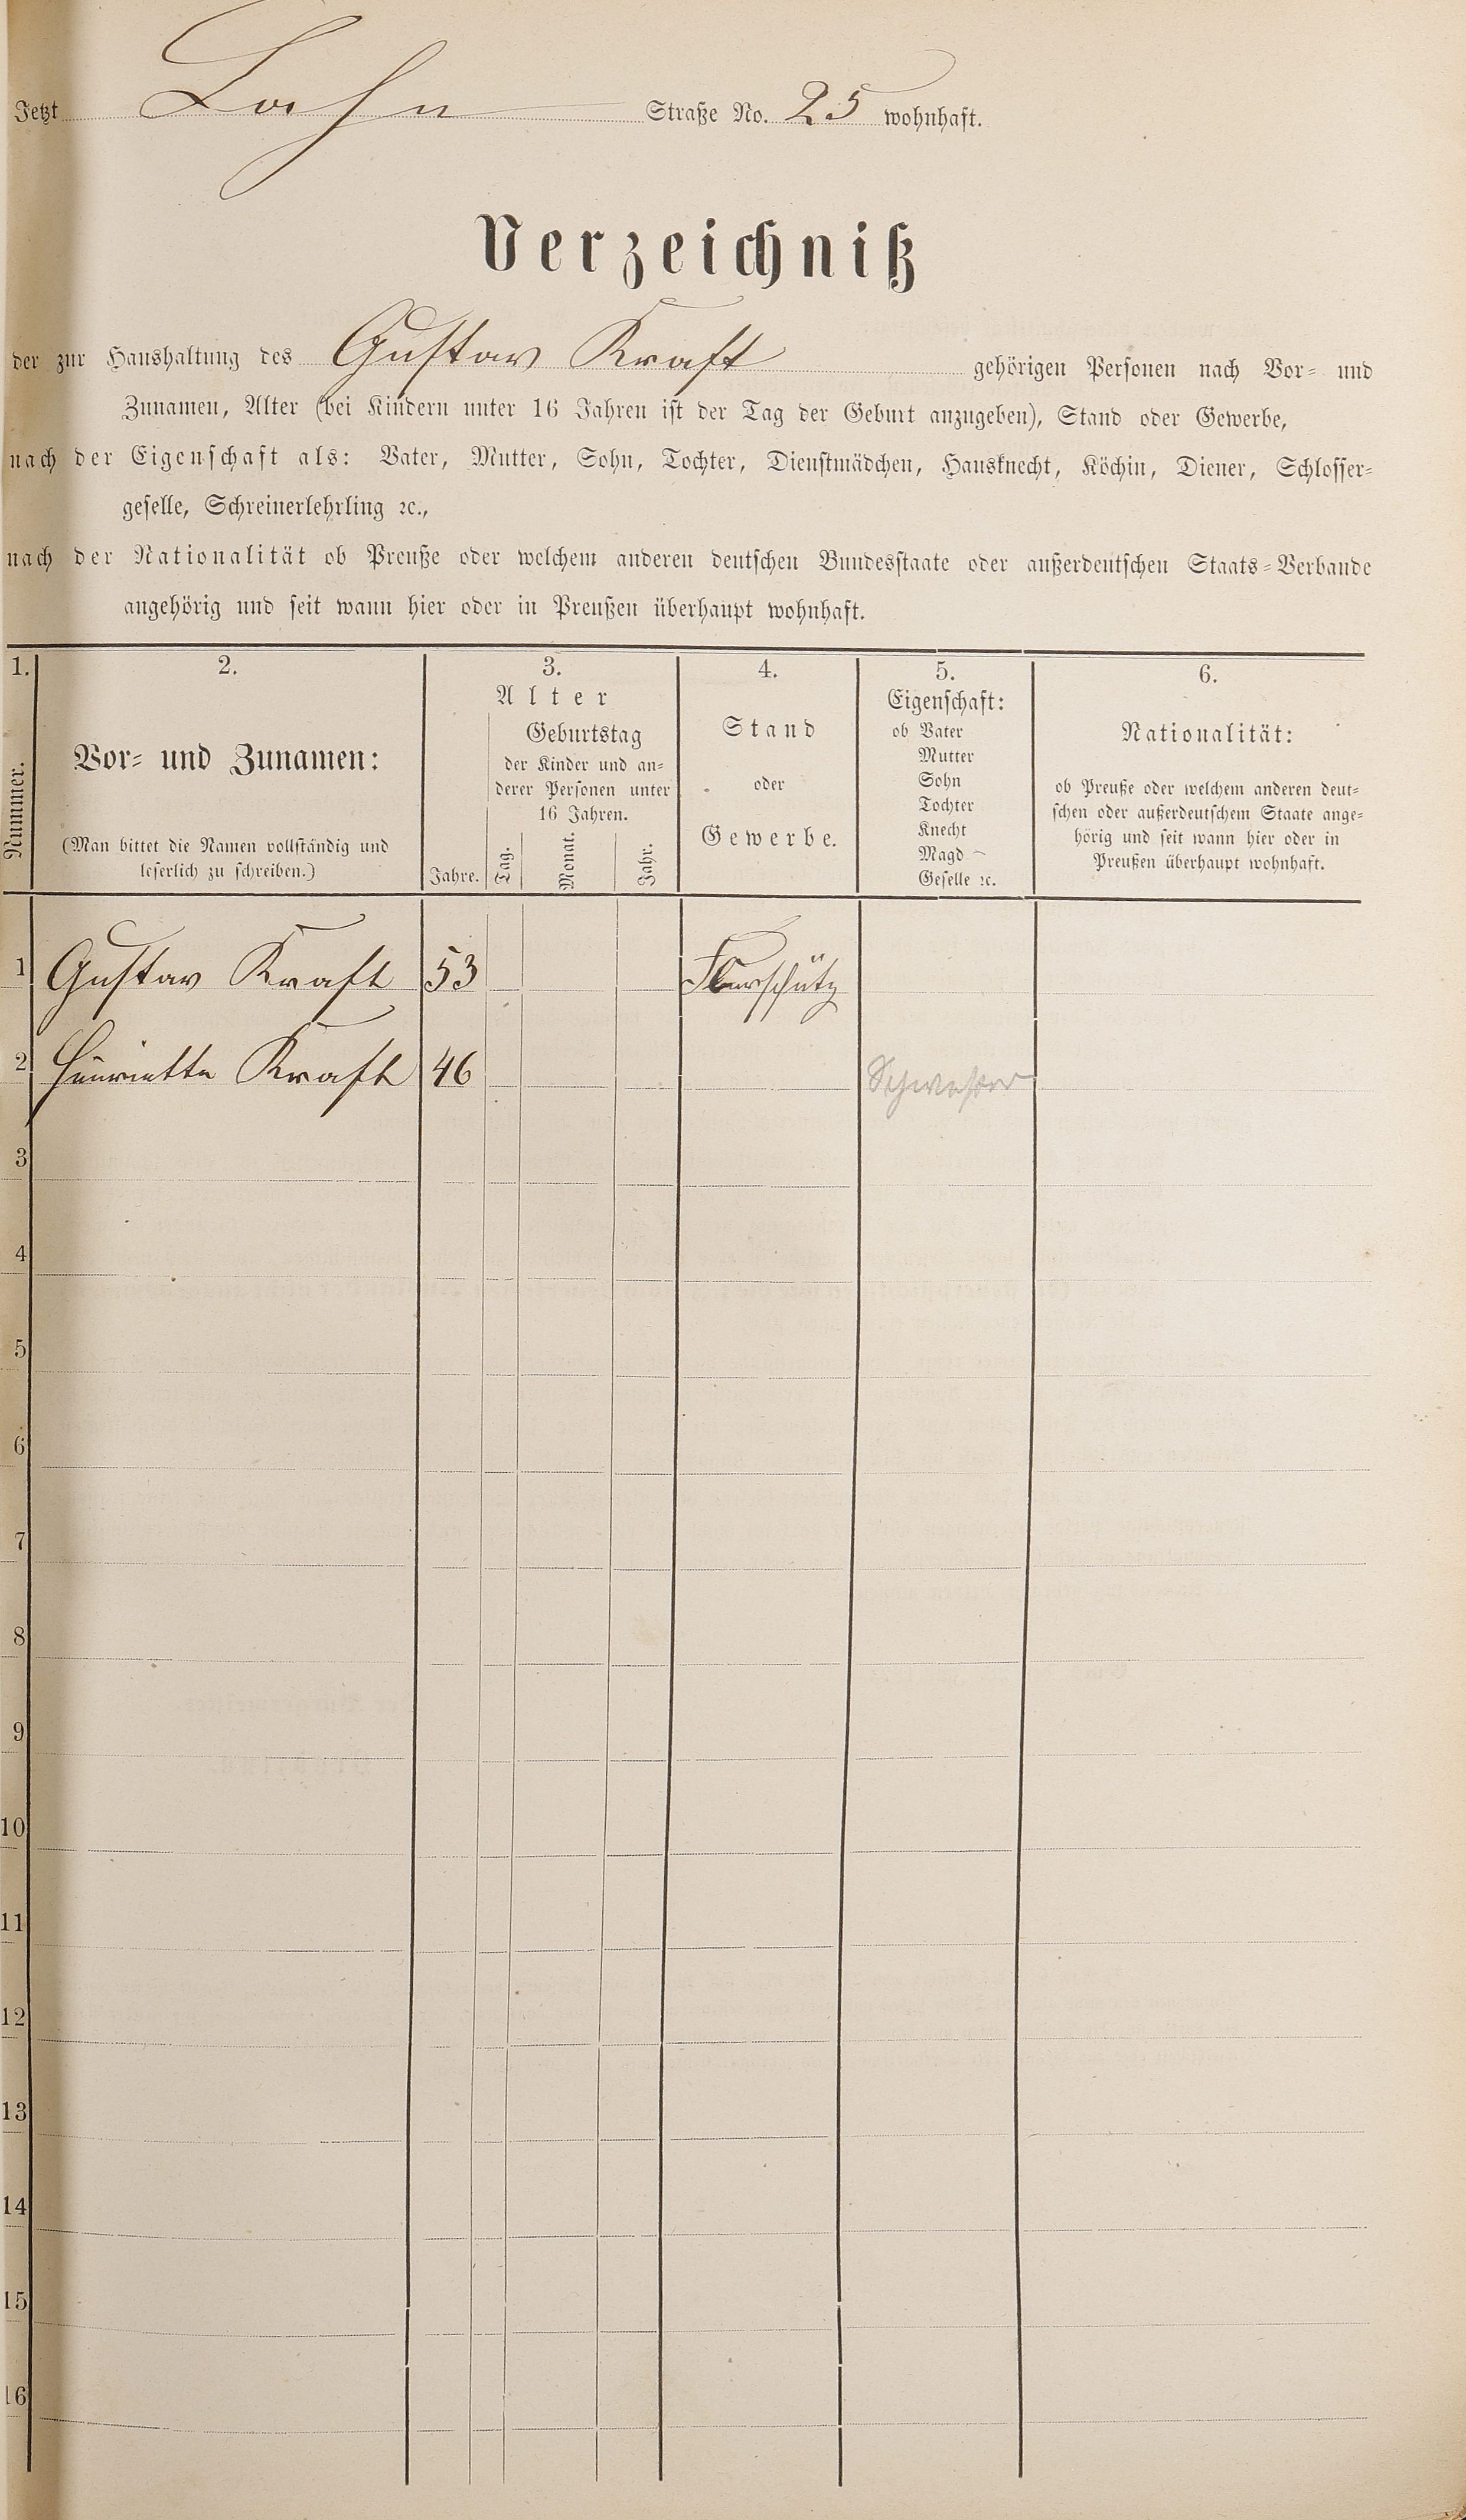 Jetzt Lahn Straße No. 25 wohnhaft.
Verzeichniß
der zur Haushaltung des Gustav Kraft gehörigen Personen nach Vor- und
Zunamen, Alter (bei Kindern unter 16 Jahren ist der Tag der Geburt anzugeben), Stand oder Gewerbe,
nach der Eigenschaft als: Vater, Mutter, Sohn, Tochter, Dienstmädchen, Hausknecht, Köchin, Diener, Schlosser-
geselle, Schreinerlehrling ꝛc.,
nach der Nationalität ob Preuße oder welchem anderen deutschen Bundesstaate oder außerdeutschen Staats-Verbande
angehörig und seit wann hier oder in Preußen überhaupt wohnhaft.
1. 2. 3. 4. 5. 6.
Nummer.
Vor- und Zunamen:
(Man bittet die Namen vollständig und
leserlich zu schreiben.)
Alter
Jahre.
Geburtstag
der Kinder und an-
derer Personen unter
16 Jahren.
Tag. Monat. Jahr.
Stand
oder
Gewerbe.
Eigenschaft:
ob Vater
Mutter
Sohn
Tochter
Knecht
Magd
Geselle ꝛc.
Nationalität:
ob Preuße oder welchem anderen deut-
schen oder außerdeutschem Staate ange-
hörig und seit wann hier oder in
Preußen überhaupt wohnhaft.
1 Gustav Kraft 53 Flurschütz
2 Henriette Kraft 46 Schwester
3
4
5
6
7
8
9
10
11
12
13
14
15
16